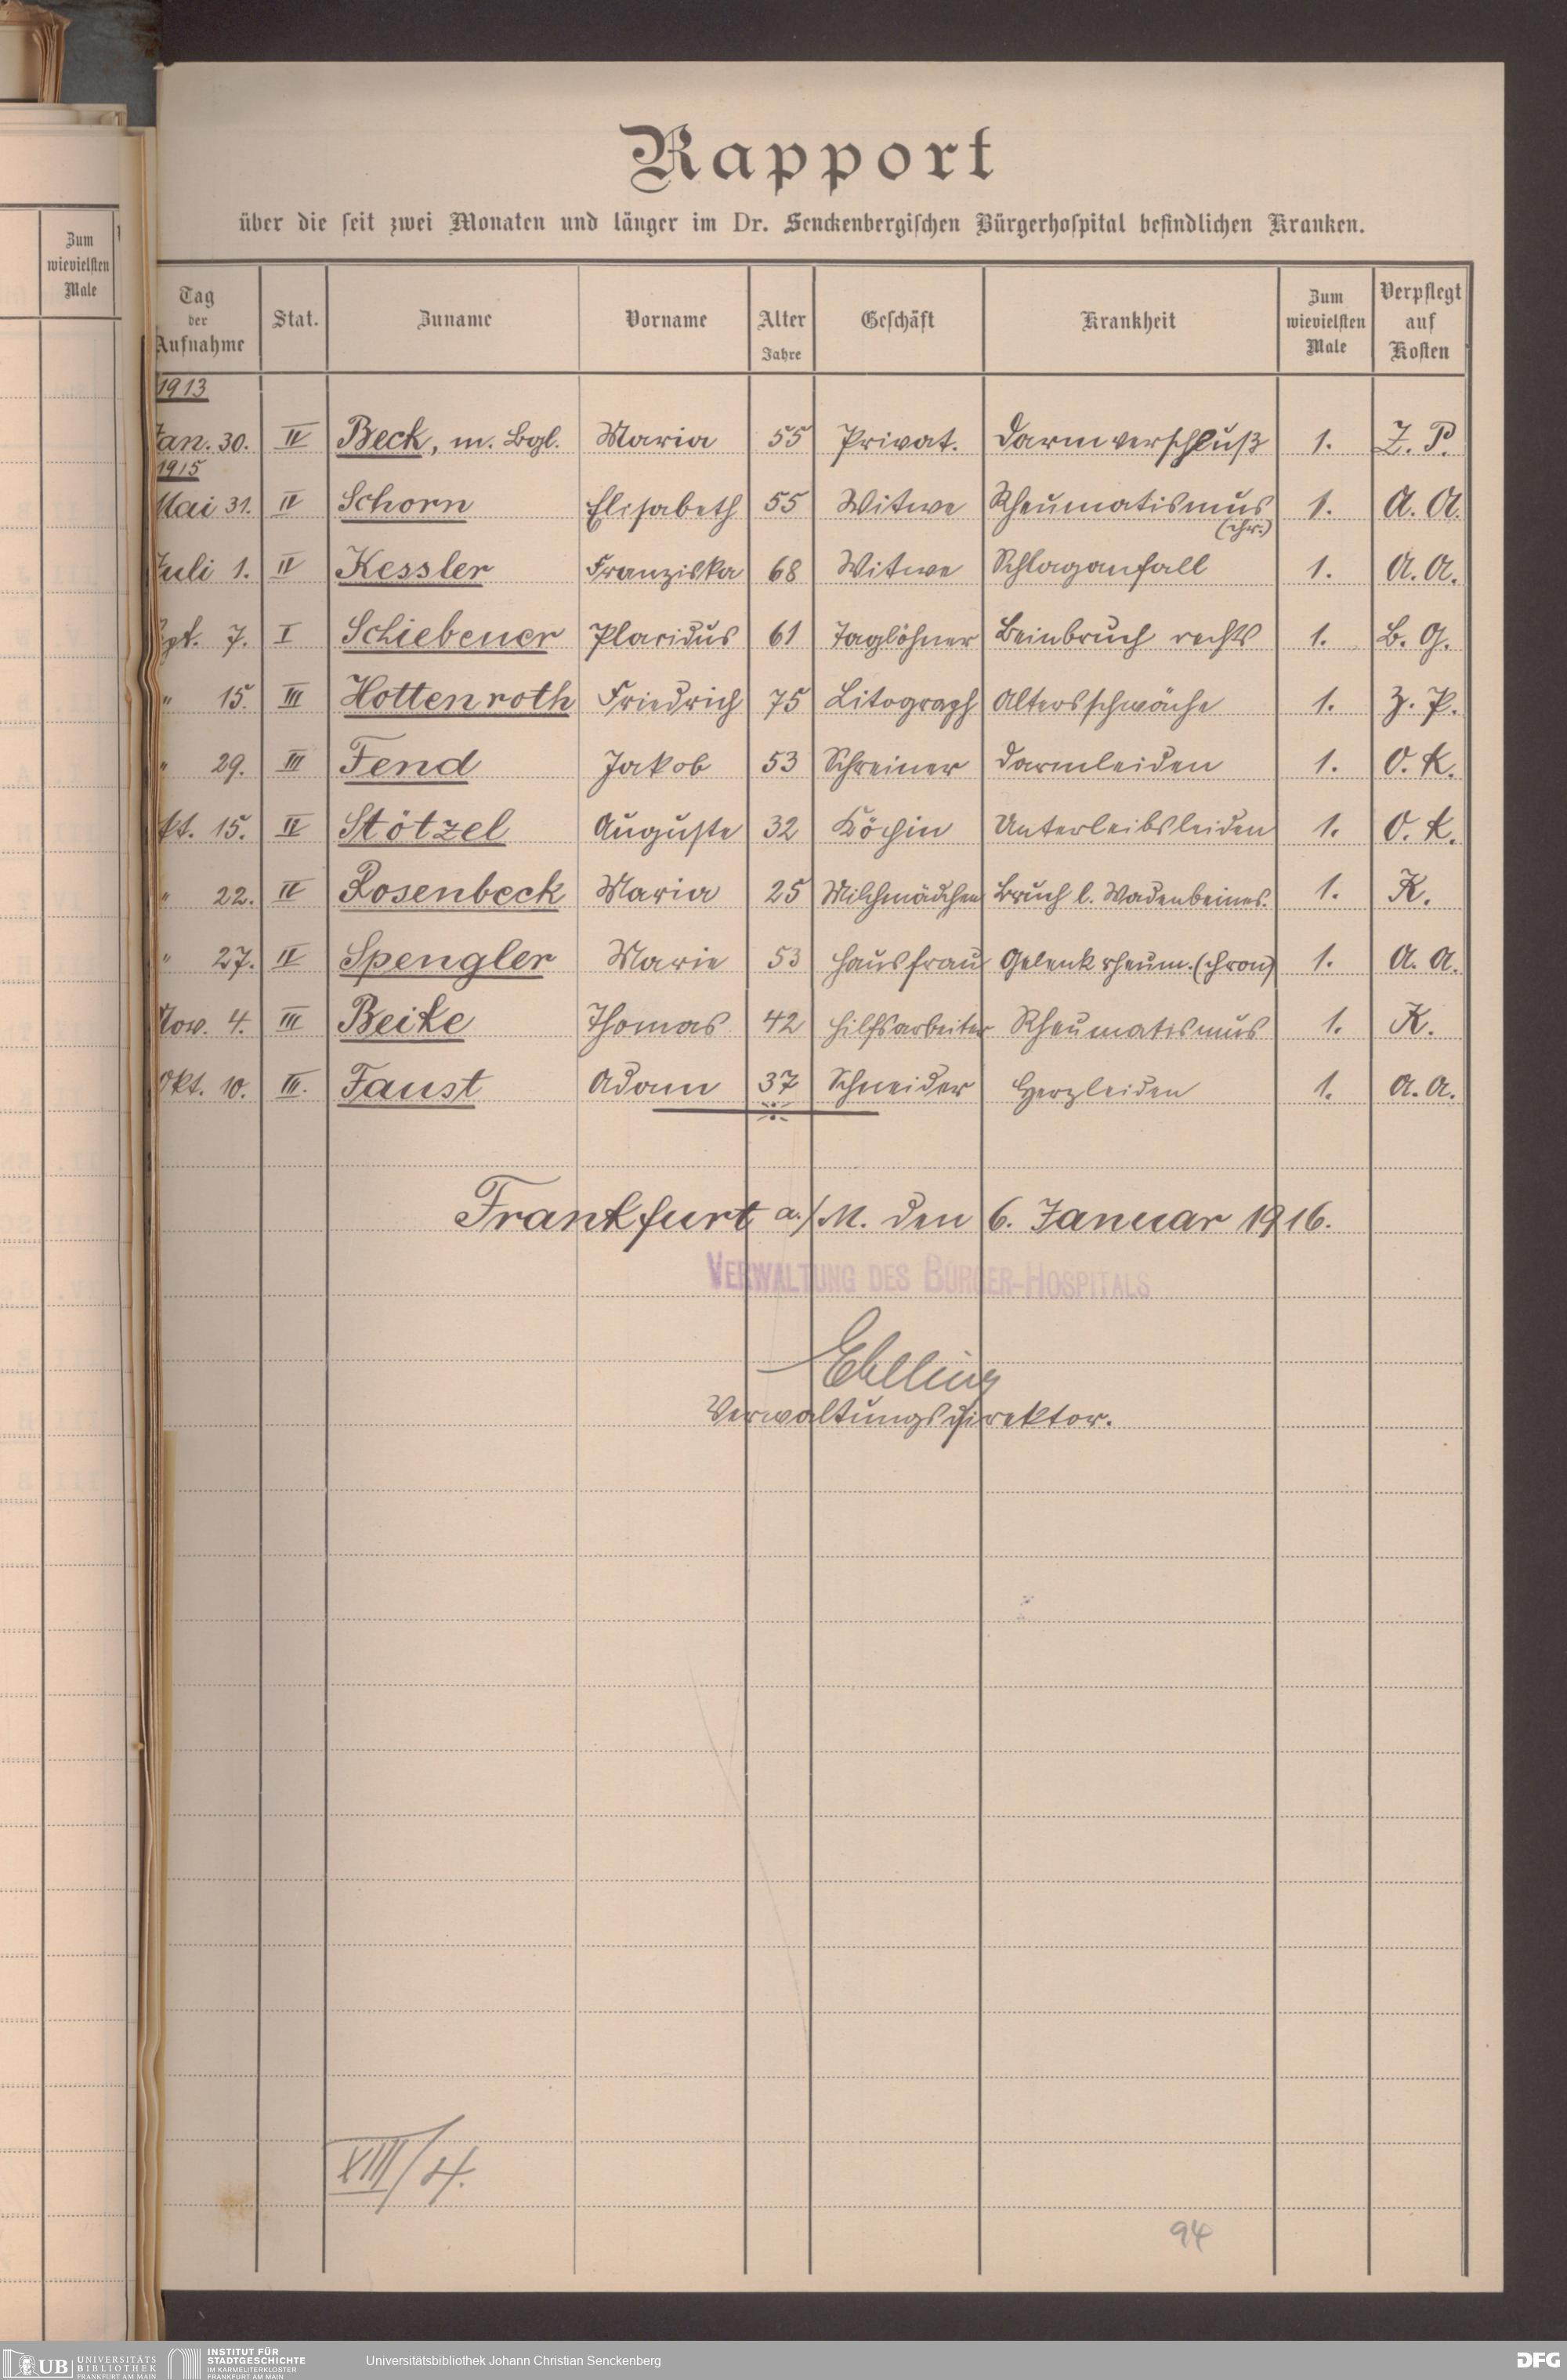 Zum
wievielsten
Male
Rapport
über die seit zwei Monaten und länger im Dr. Senckenbergischen Bürgerhospital befindlichen Kranken.
Tag der Aufnahme Stat. Zuname Vorname Alter Jahre Geschäft Krankheit Zum wievielsten Male Verpflegt auf Kosten
1913
Jan. 30. IV Beck, m. Bgl. Maria 55 Privat. Darmverschluß 1. Z. P.
1915
Mai 31. IV Schorn Elisabeth 55 Witwe Rheumatismus (chr.) 1. A. A.
Juli 1. IV Kessler Franziska 68 Witwe Schlaganfall 1. A. A.
Spt. 7. I Schiebener Placidus 61 Taglöhner Beinbruch rechts 1. B. G.
" 15. III Hottenroth Friedrich 75 Litograph Altersschwäche 1. Z. P.
" 29. III Fend Jakob 53 Schreiner Darmleiden 1. O. K.
Okt. 15. IV Stötzel Auguste 32 Köchin Unterleibsleiden 1. O. K.
" 22. IV Rosenbeck Maria 25 Milchmädchen Bruch l. Wadenbeines. 1. K.
" 27. IV Spengler Marie 53 Hausfrau Gelenkrheum. (chron) 1. A. A.
Nov. 4. III Beike Thomas 42 Hilfsarbeiter Rheumatismus 1. K.
Okt. 10. III. Faust Adam 37 Schneider Herzleiden 1. A. A.
Frankfurt a./M. den 6. Januar 1916.
VERWALTUNG DES BÜRGER-HOSPITALS
Ebeling
Verwaltungsdirektor.
XIII/4.
94
UB UNIVERSITÄTS
BIBLIOTHEK
FRANKFURT AM MAIN
INSTITUT FÜR
STADTGESCHICHTE
IM KARMELITERKLOSTER
FRANKFURT AM MAIN
Universitätsbibliothek Johann Christian Senckenberg
DFG